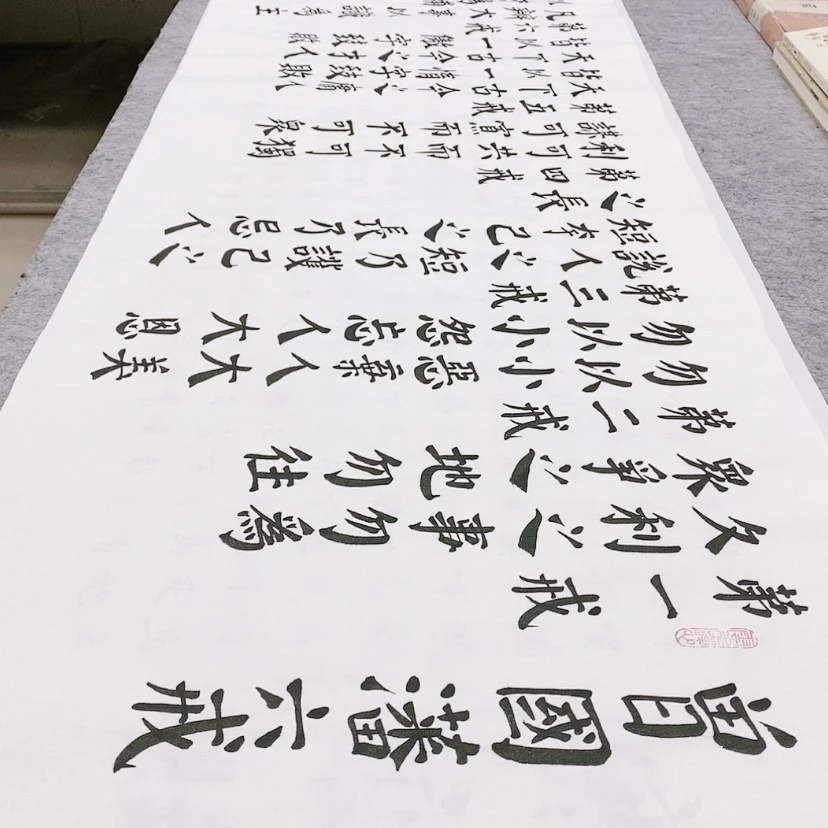 曾國藩六戒
第一戒
久利之事勿爲
眾爭之地勿往
第二戒
勿以小惡棄人大美
勿以小怨忘人大恩
第三戒
說人之短乃護己之
短夸己之長乃忌人
之長
第四戒
利可共而不可獨
謀可寡而不可眾
第五戒
天下古今之庸人
皆以一惰字致敗
天下古今之才人
皆以一傲字致敗
第六戒
凡辦大事以識爲主